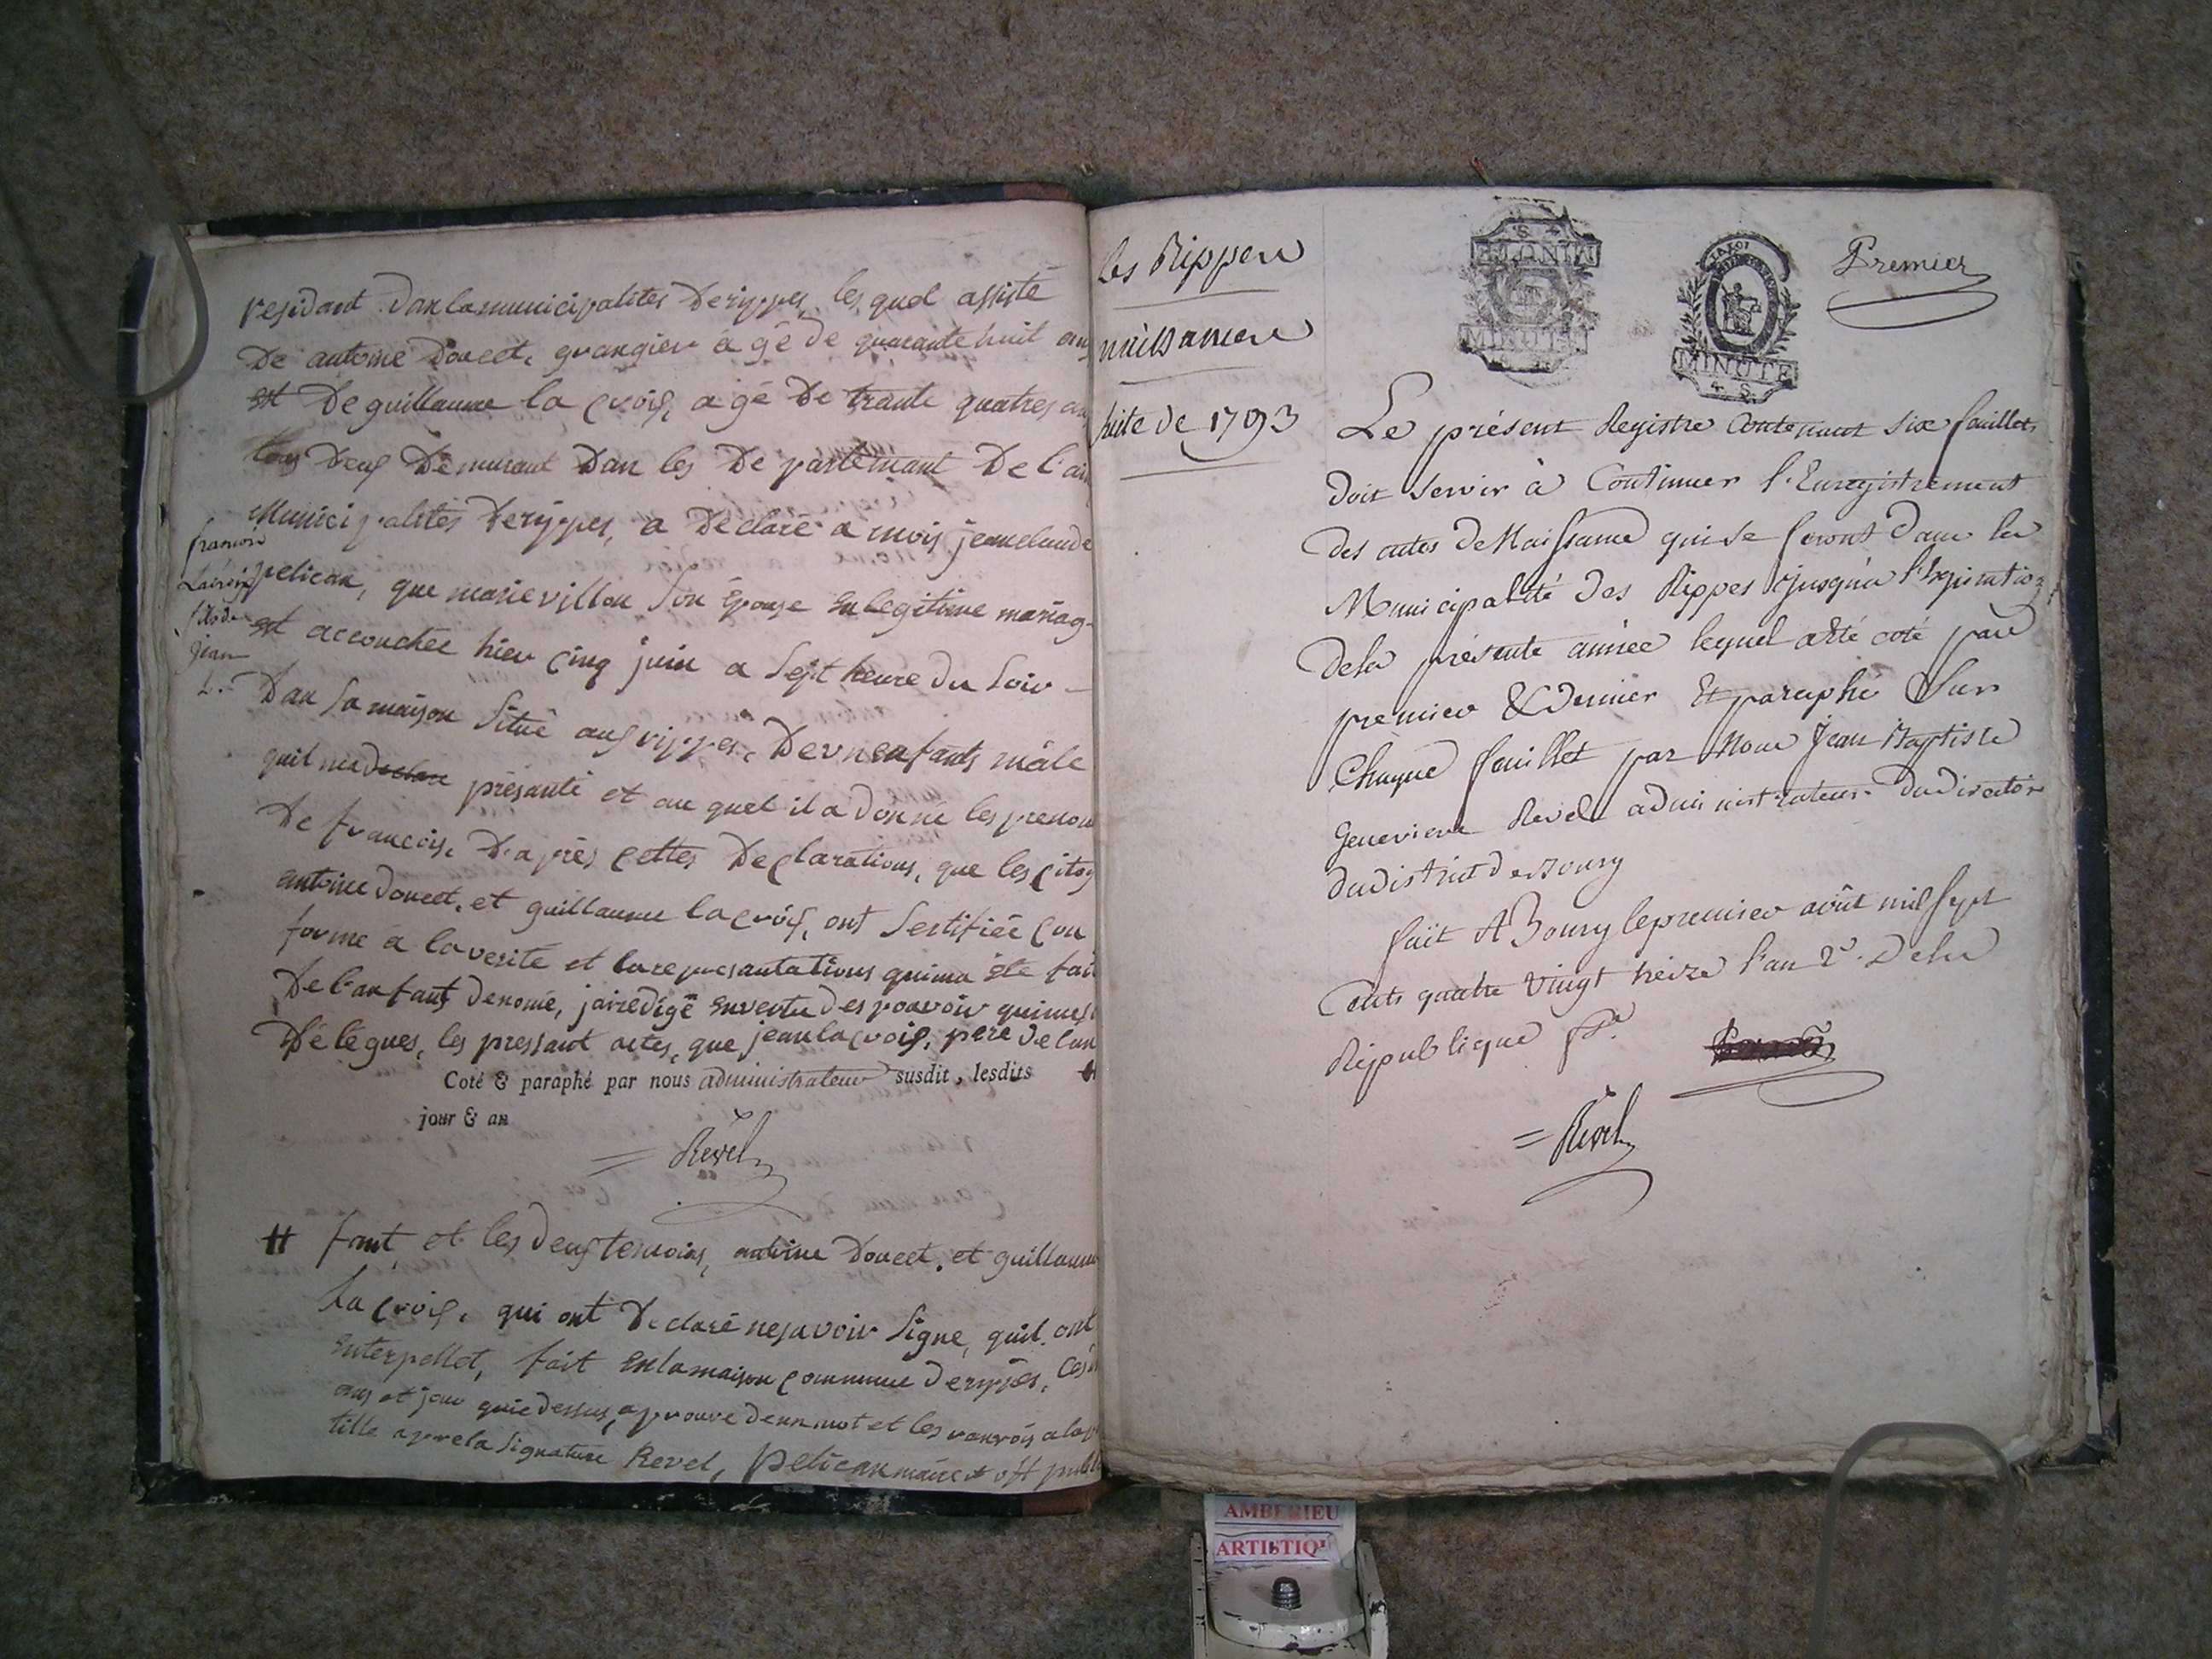 residant dan la municipalites de rippes, les quel assisté
De antoine Doucet, grangier a gé de quarante huit an
est De guillaume la croix, a gé De trante quatres an
tous deux Demurant Dan les De partemant De l'ain
Municipalités de rippes, a Declaré a mois jean claude
pelican, que marie villon son Epouse en legitime mariag
est accouchée hier cinq juin a Sept heure du Soir
Dan sa maison Situé aux rippes, De un enfants mâle
quil ma declare présanté et au quel il a donné les prenom
De francois, D'après cettes Declarations, que les citoy
antoine doucet, et guillaume la croix, ont Sertifiée con
forme a la verité et la represantations qui ma été fait
De l'anfant denomé, jai redigé en vertu des pouvoir qui mes
Délégues, les pressant actes, que jean la croix, pere de l'an
francois
Lacroix
fils de
jean
L..
Coté & paraphé par nous administrateur susdit, lesdits #
jour & an
= Revel
# fant et les deux temoins, antoine Doucet, et guillaume
La croix, qui ont Declaré ne savoir Signe, quil ont
enterpellet, fait en la maison commune de rippes, les
ans et jour quie dessus, aprouve deun mot et les ranvois a la
tille apre la Signature Revel, pelican maire et off publ
Les Rippes
naissances
suite de 1793
MINUTE
4. S.
MINUTE
4. S.
Premier
Le présent Registre Contenant six feuillets
doit servir à Continuer l'Enregistrement
des actes de Naissance qui se feront dans la
Municipalité des Rippes jusqu'a l'Expiration
de la présente année lequel a été coté par
premier & Dernier Et paraphé Sur
Chaque feuillet par Nous Jean Baptiste
Genevieve Revel administrateur du directoire
du district de Bourg
fait A Bourg le premier août mil sept
Cents quatre vingt treize l'an 2e. De la
Republique fse.
= Revel
AMBERIEU
ARTISTIQU